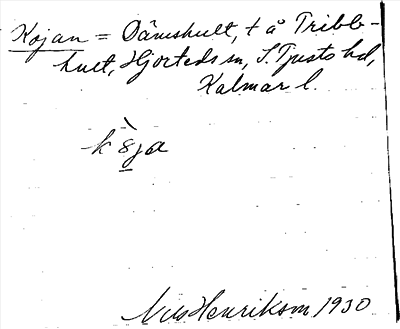 Kojan = Dämshult, t å Tribb-
hult, Hjorteds sn, S. Tjusts hd,
Kalmar l.
kòja
Nils Henrikson 1930